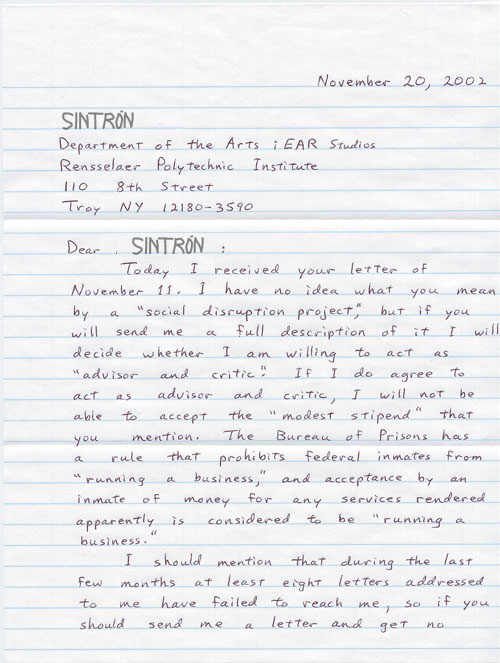 November 20, 2002
SINTRÓN
Department of the Arts iEAR Studios
Rensselaer Polytechnic Institute
110 8th Street
Troy NY 12180-3590
Dear SINTRÓN :
Today I received your letter of
November 11. I have no idea what you mean
by a "social disruption project," but if you
will send me a full description of it I will
decide whether I am willing to act as
"advisor and critic." If I do agree to
act as advisor and critic, I will not be
able to accept the "modest stipend" that
you mention. The Bureau of Prisons has
a rule that prohibits federal inmates from
"running a business," and acceptance by an
inmate of money for any services rendered
apparently is considered to be "running a
business."
I should mention that during the last
few months at least eight letters addressed
to me have failed to reach me, so if you
should send me a letter and get no